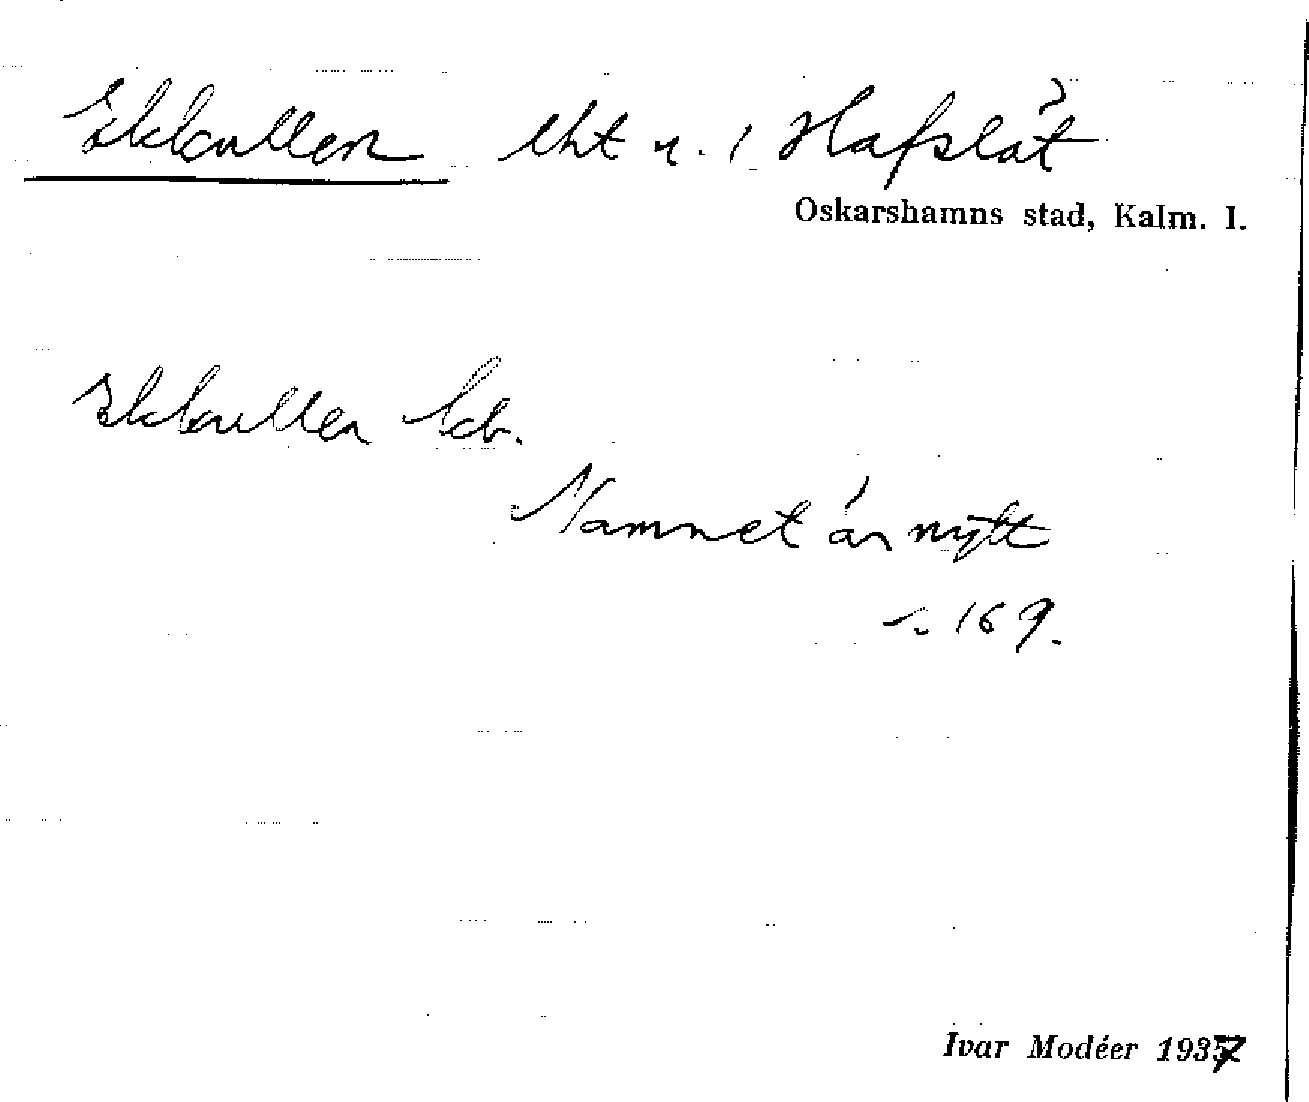 Ekkullen lht u. / Hafslåt
Oskarshamns stad, Kalm. l.
Ekkullen kb.
Namnet är nytt
s. 169.
Ivar Modéer 1937